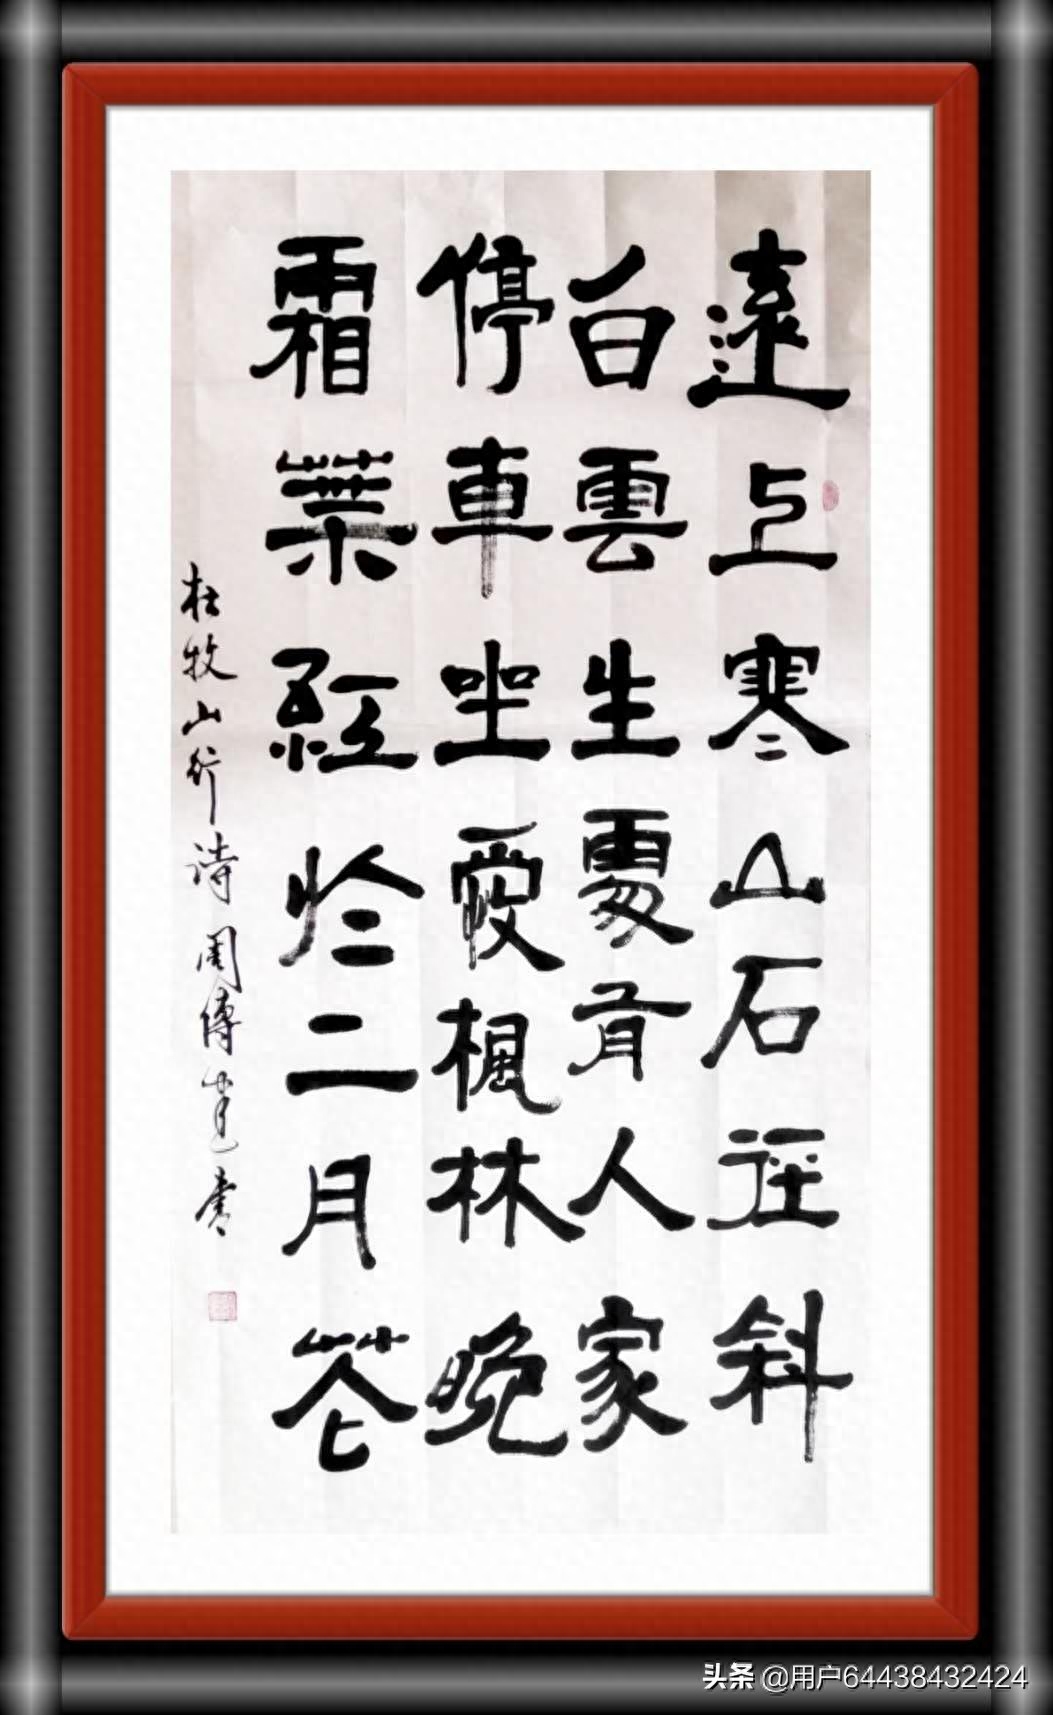 遠上寒山石徑斜
白雲生處有人家
停車坐愛楓林晚
霜葉紅於二月花
杜牧山行诗 周傳 書
头条 @用户64438432424